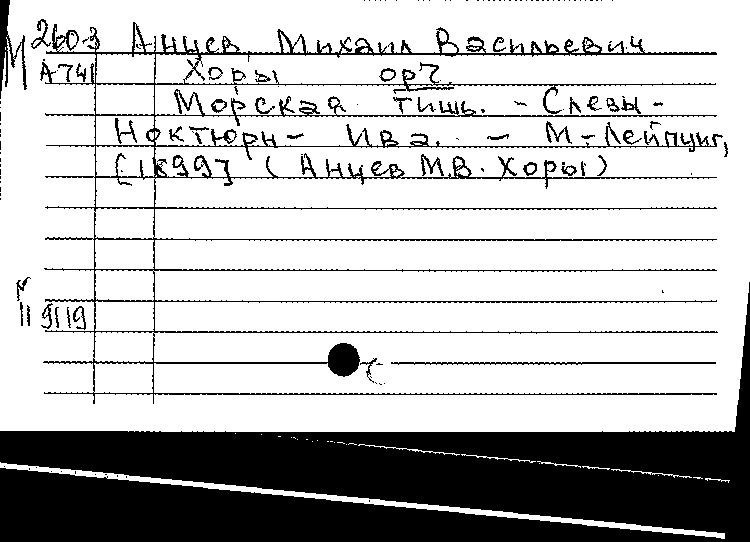 М 2603 Анцев, Михаил Васильевич
А-741 Хоры ор7.
Морская тишь. - Слезы -
Ноктюрн - Ива. - М-Лейпциг,
[1899] (Анцев М.В. Хоры)
11 9119